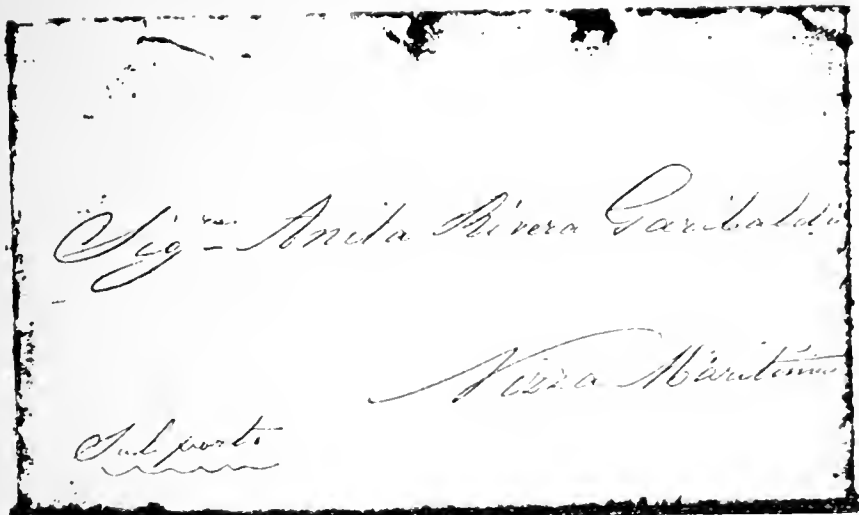 Sig.ra Anita Rivera Garibaldi
Nizza Marittima
Sul porto